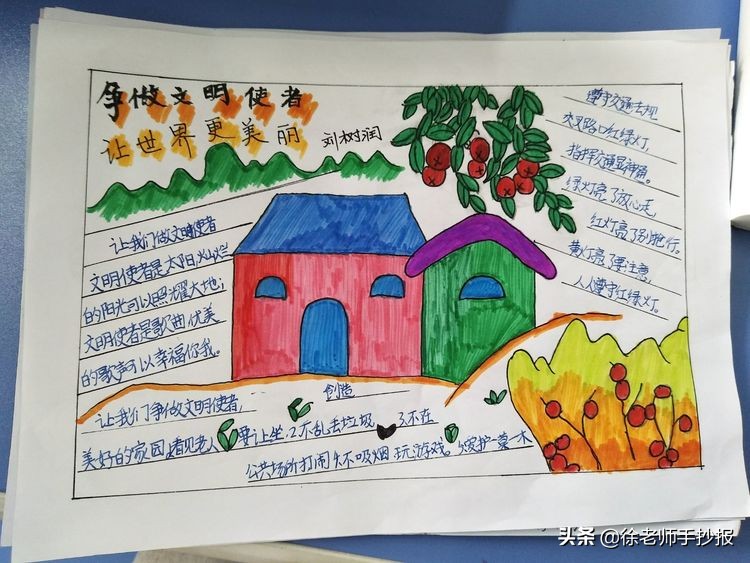 争做文明使者
让世界更美丽
刘树润
让我们做文明使者
文明使者是太阳,灿烂
的阳光可以照耀大地;
文明使者是歌曲,优美
的歌声可以幸福你我。
遵守交通法规
交叉路口红绿灯,
指挥交通显神通。
绿灯亮了放心走,
红灯亮了别抢行。
黄灯亮了要注意,
人人遵守红绿灯。
让我们争做文明使者, 创造
美好的家园 看见老人要让坐.2不乱去垃圾 3.不在
公共场所打闹 不吸烟 玩游戏。 爱护一草一木
头条 @徐老师手抄报